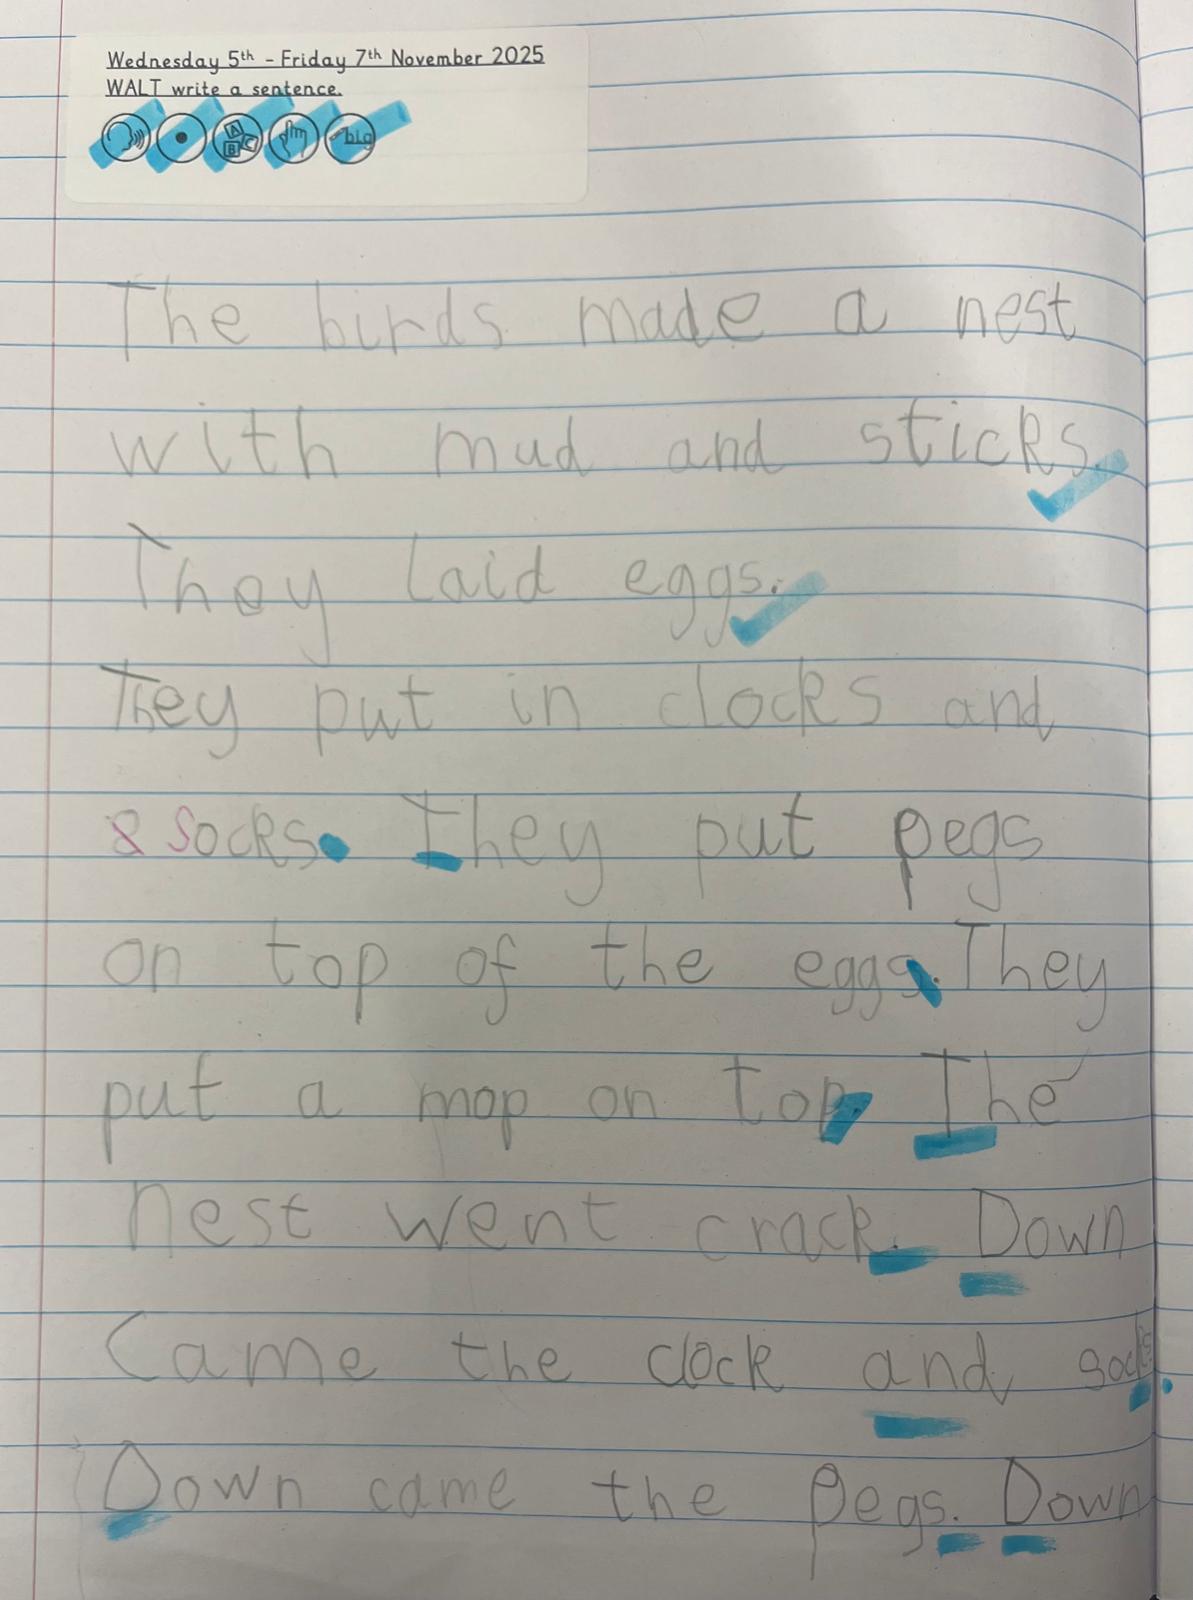 Wednesday 5th - Friday 7th November 2025
WALT write a sentence.
A
B C
big
The birds made a nest
with mud and sticks.
They laid eggs.
They put in clocks and
socks. They put pegs
on top of the eggs. They
put a mop on top. The
nest went crack. Down
Came the clock and socks.
Down came the pegs. Down